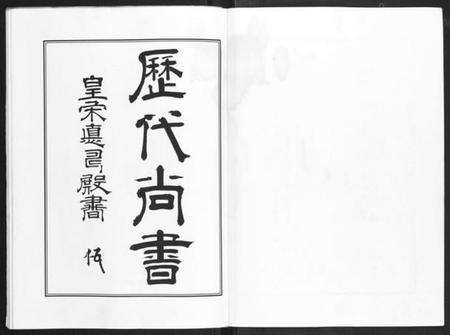 歷代尚書
皇宋惪司殿書
伍